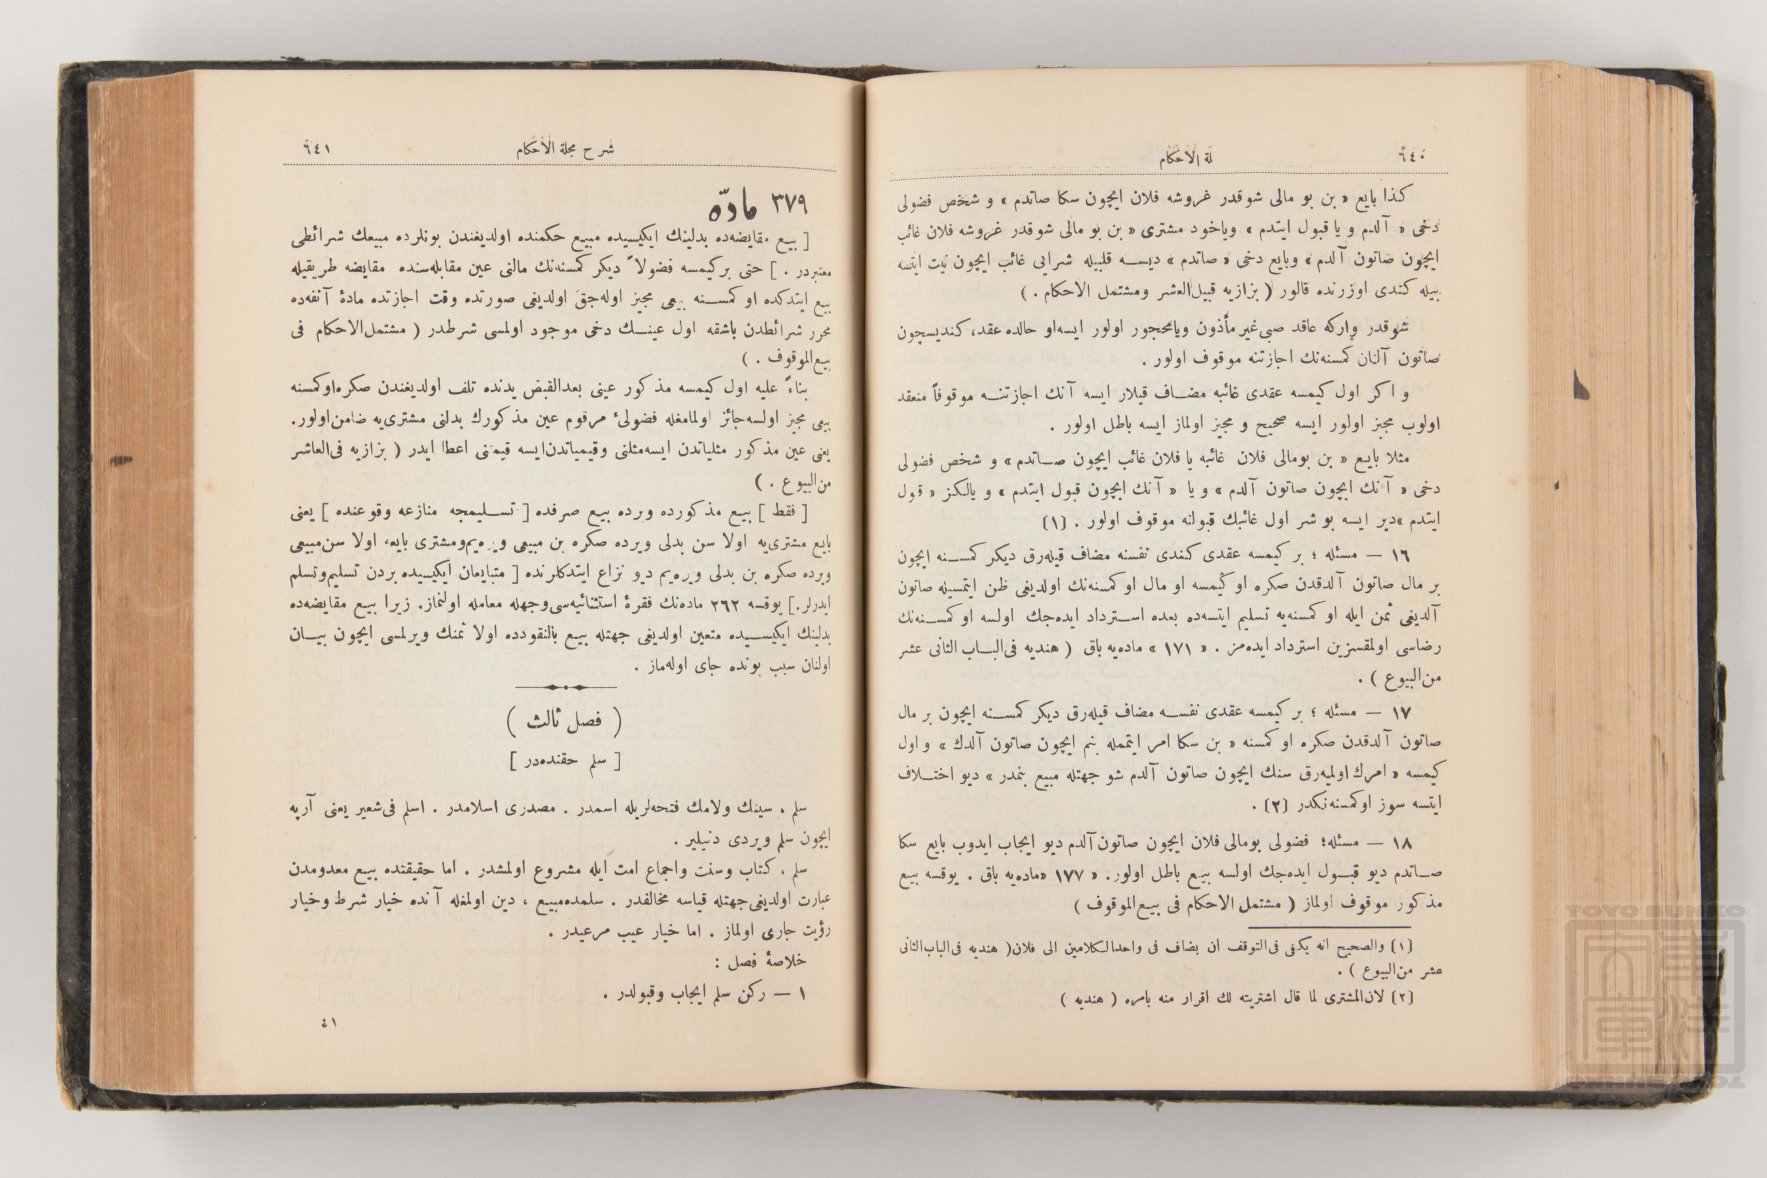 ٦٤٠
لة الاحكام
كذا بايع « بن بو مالى شو قدر غروشه فلان ايچون سكا صاتدم » و شخص فضولى
دخى « آلدم و يا قبول ايتدم » وياخود مشترى « بن بو مالى شو قدر غروشه فلان غائب
ايچون صاتون آلدم » وبايع دخى « صاتدم » ديسه قلبيله شرايى غائب ايچون نيت ايتسه
بيله كندى اوزرنده قالور ( بزازيه قبيل‌العشر ومشتمل الاحكام . )
شو قدر واركه عاقد صبى‌غير مأذون ويا محجور اولور ايسه‌او حالده عقد، كنديسچون
صاتون آلنان كمسنه‌نك اجازتنه موقوف اولور .
و اكر اول كيمسه عقدى غائبه مضاف قيلار ايسه آنك اجازتنه موقوفاً منعقد
اولوب مجيز اولور ايسه صحيح و مجيز اولماز ايسه باطل اولور .
مثلا بايع « بن بومالى فلان غائبه يا فلان غائب ايچون صاتدم » و شخص فضولى
دخى « آنك ايچون صاتون آلدم » و يا « آنك ايچون قبول ايتدم » و يالكز « قبول
ايتدم »دير ايسه بو شر اول غائبك قبولنه موقوف اولور . (١)
١٦ — مسئله ؛ بر كيمسه عقدى كندى نفسنه مضاف قيله‌رق ديكر كمسنه ايچون
بر مال صاتون آلدقدن صكره او كيمسه او مال او كمسنه‌نك اولديغى ظن ايتمسيله صاتون
آلديغى ثمن ايله او كمسنه‌يه تسليم ايتسه‌ده بعده استرداد ايده‌جك اولسه او كمسنه‌نك
رضاسى اولمقسزين استرداد ايده‌مز . « ١٧١ » ماده‌يه باق ( هنديه فى‌الباب الثانى عشر
من‌البيوع ) .
١٧ — مسئله ؛ بر كيمسه عقدى نفسه مضاف قيله‌رق ديكر كمسنه ايچون بر مال
صاتون آلدقدن صكره او كمسنه « بن سكا امر ايتممله بنم ايچون صاتون آلدك » و اول
كيمسه « امرك اولميه‌رق سنك ايچون صاتون آلدم شو جهتله مبيع بنمدر » ديو اختلاف
ايتسه سوز اوكمسنه‌نكدر (٢) .
١٨ — مسئله؛ فضولى بومالى فلان ايچون صاتون آلدم ديو ايجاب ايدوب بايع سكا
صاتدم ديو قبول ايده‌جك اولسه بيع باطل اولور. « ١٧٧ »ماده‌يه باق . يوقسه بيع
مذكور موقوف اولماز ( مشتمل الاحكام فى بيع‌الموقوف )
(١) والصحيح انه يكفى فى‌التوقف ان يضاف فى واحدالكلامين الى فلان( هنديه فى‌الباب‌الثانى
عشر من‌البيوع ) .
(٢) لان‌المشترى لما قال اشتريته لك اقرار منه بامره ( هنديه )
شرح مجلة الاحكام
٦٤١
٣٧٩ مادّه
[ بيع مقايضه‌ده بدلينك ايكيسيده مبيع حكمنده اولديغندن بونلرده مبيعك شرائطى
معتبردر . ] حتى بر كيمسه فضولاً ديكر كمسنه‌نك مالنى عين مقابله‌سنده مقايضه طريقيله
بيع ايتدكده او كمسنه بيعى مجيز اوله‌جق اولديغى صورتده وقت اجازتده مادۀ آنفه‌ده
محرر شرائطدن باشقه اول عينك دخى موجود اولمسى شرطدر ( مشتمل‌الاحكام فى
بيع‌الموقوف . )
بناءً عليه اول كيمسه مذكور عينى بعدالقبض يدنده تلف اولديغندن صكره‌اوكمسنه
بيعى مجيز اولسه‌جائز اولمامغله فضولىء مرقوم عين مذكورك بدلنى مشترى‌يه ضامن‌اولور.
يعنى عين مذكور مثلياتدن ايسه‌مثلنى وقيمياتدن‌ايسه قيمتنى اعطا ايدر ( بزازيه فى‌العاشر
من‌البيوع . )
[ فقط ] بيع مذكورده وبرده بيع صرفده [ تسليمجه منازعه وقوعنده ] يعنى
بايع مشترى‌يه اولا سن بدلى ويرده صكره بن مبيعى ويره‌يم‌ومشترى بايعه اولا سن‌مبيعى
ويرده صكره بن بدلى ويره‌يم ديو نزاع ايتدكلرنده [ متبايعان ايكيسيده بردن تسليم‌وتسلم
ايدرلر.] يوقسه ٢٦٢ ماده‌نك فقرۀ استثنائيه‌سى‌وجهله معامله اولنماز. زيرا بيع مقايضه‌ده
بدلينك ايكيسيده متعين اولديغى جهتله بيع بالنقودده اولا ثمنك ويرلمسى ايچون بيان
اولنان سبب بونده جاى اوله‌ماز .
( فصل ثالث )
[ سلم حقنده‌در ]
سلم ، سينك ولامك فتحه‌لريله اسمدر . مصدرى اسلامدر . اسلم فى‌شعير يعنى آرپه
ايچون سلم ويردى دنيلير .
سلم ، كتاب وسنت واجماع امت ايله مشروع اولمشدر . اما حقيقتده بيع معدومدن
عبارت اولديغى‌جهتله قياسه مخالفدر . سلمده‌مبيع ، دين اولمغله آنده خيار شرط وخيار
رؤيت جارى اولماز . اما خيار عيب مرعيدر .
خلاصۀ فصل :
١ — ركن سلم ايجاب وقبولدر .
٤١
TOYO BUNKO